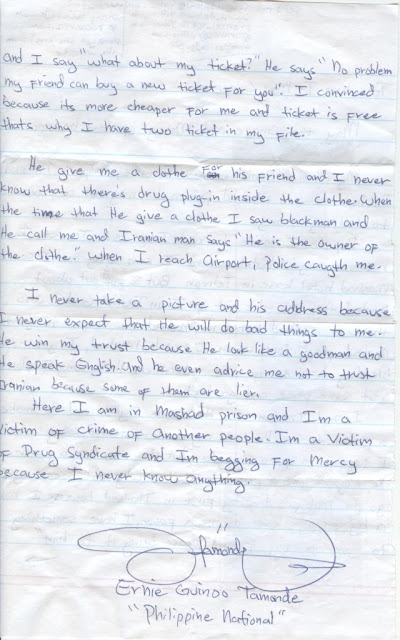 and I say "what about my ticket?" He says "No problem
my friend can buy a new ticket for you". I convinced
because its more cheaper for me and ticket is free
thats why I have two ticket in my file.
He give me a clothe for his friend and I never
know that there's drug plug-in inside the clothe. When
the time that He give a clothe I saw blackman and
He call me and Iranian man says "He is the owner of
the clothe." when I reach airport, Police caugth me.
I never take a picture and his address because
I never expect that He will do bad things to me.
He win my trust because He look like a goodman and
He speak English. and he even advice me not to trust
Iranian because some of them are lier.
Here I am in Mashad prison and Im a
victim of crime of another people. Im a Victim
of Drug Syndicate and Im begging for Mercy
because I never know anything.
Tamonde
Ernie Guinoo Tamonde
"Philippine National"